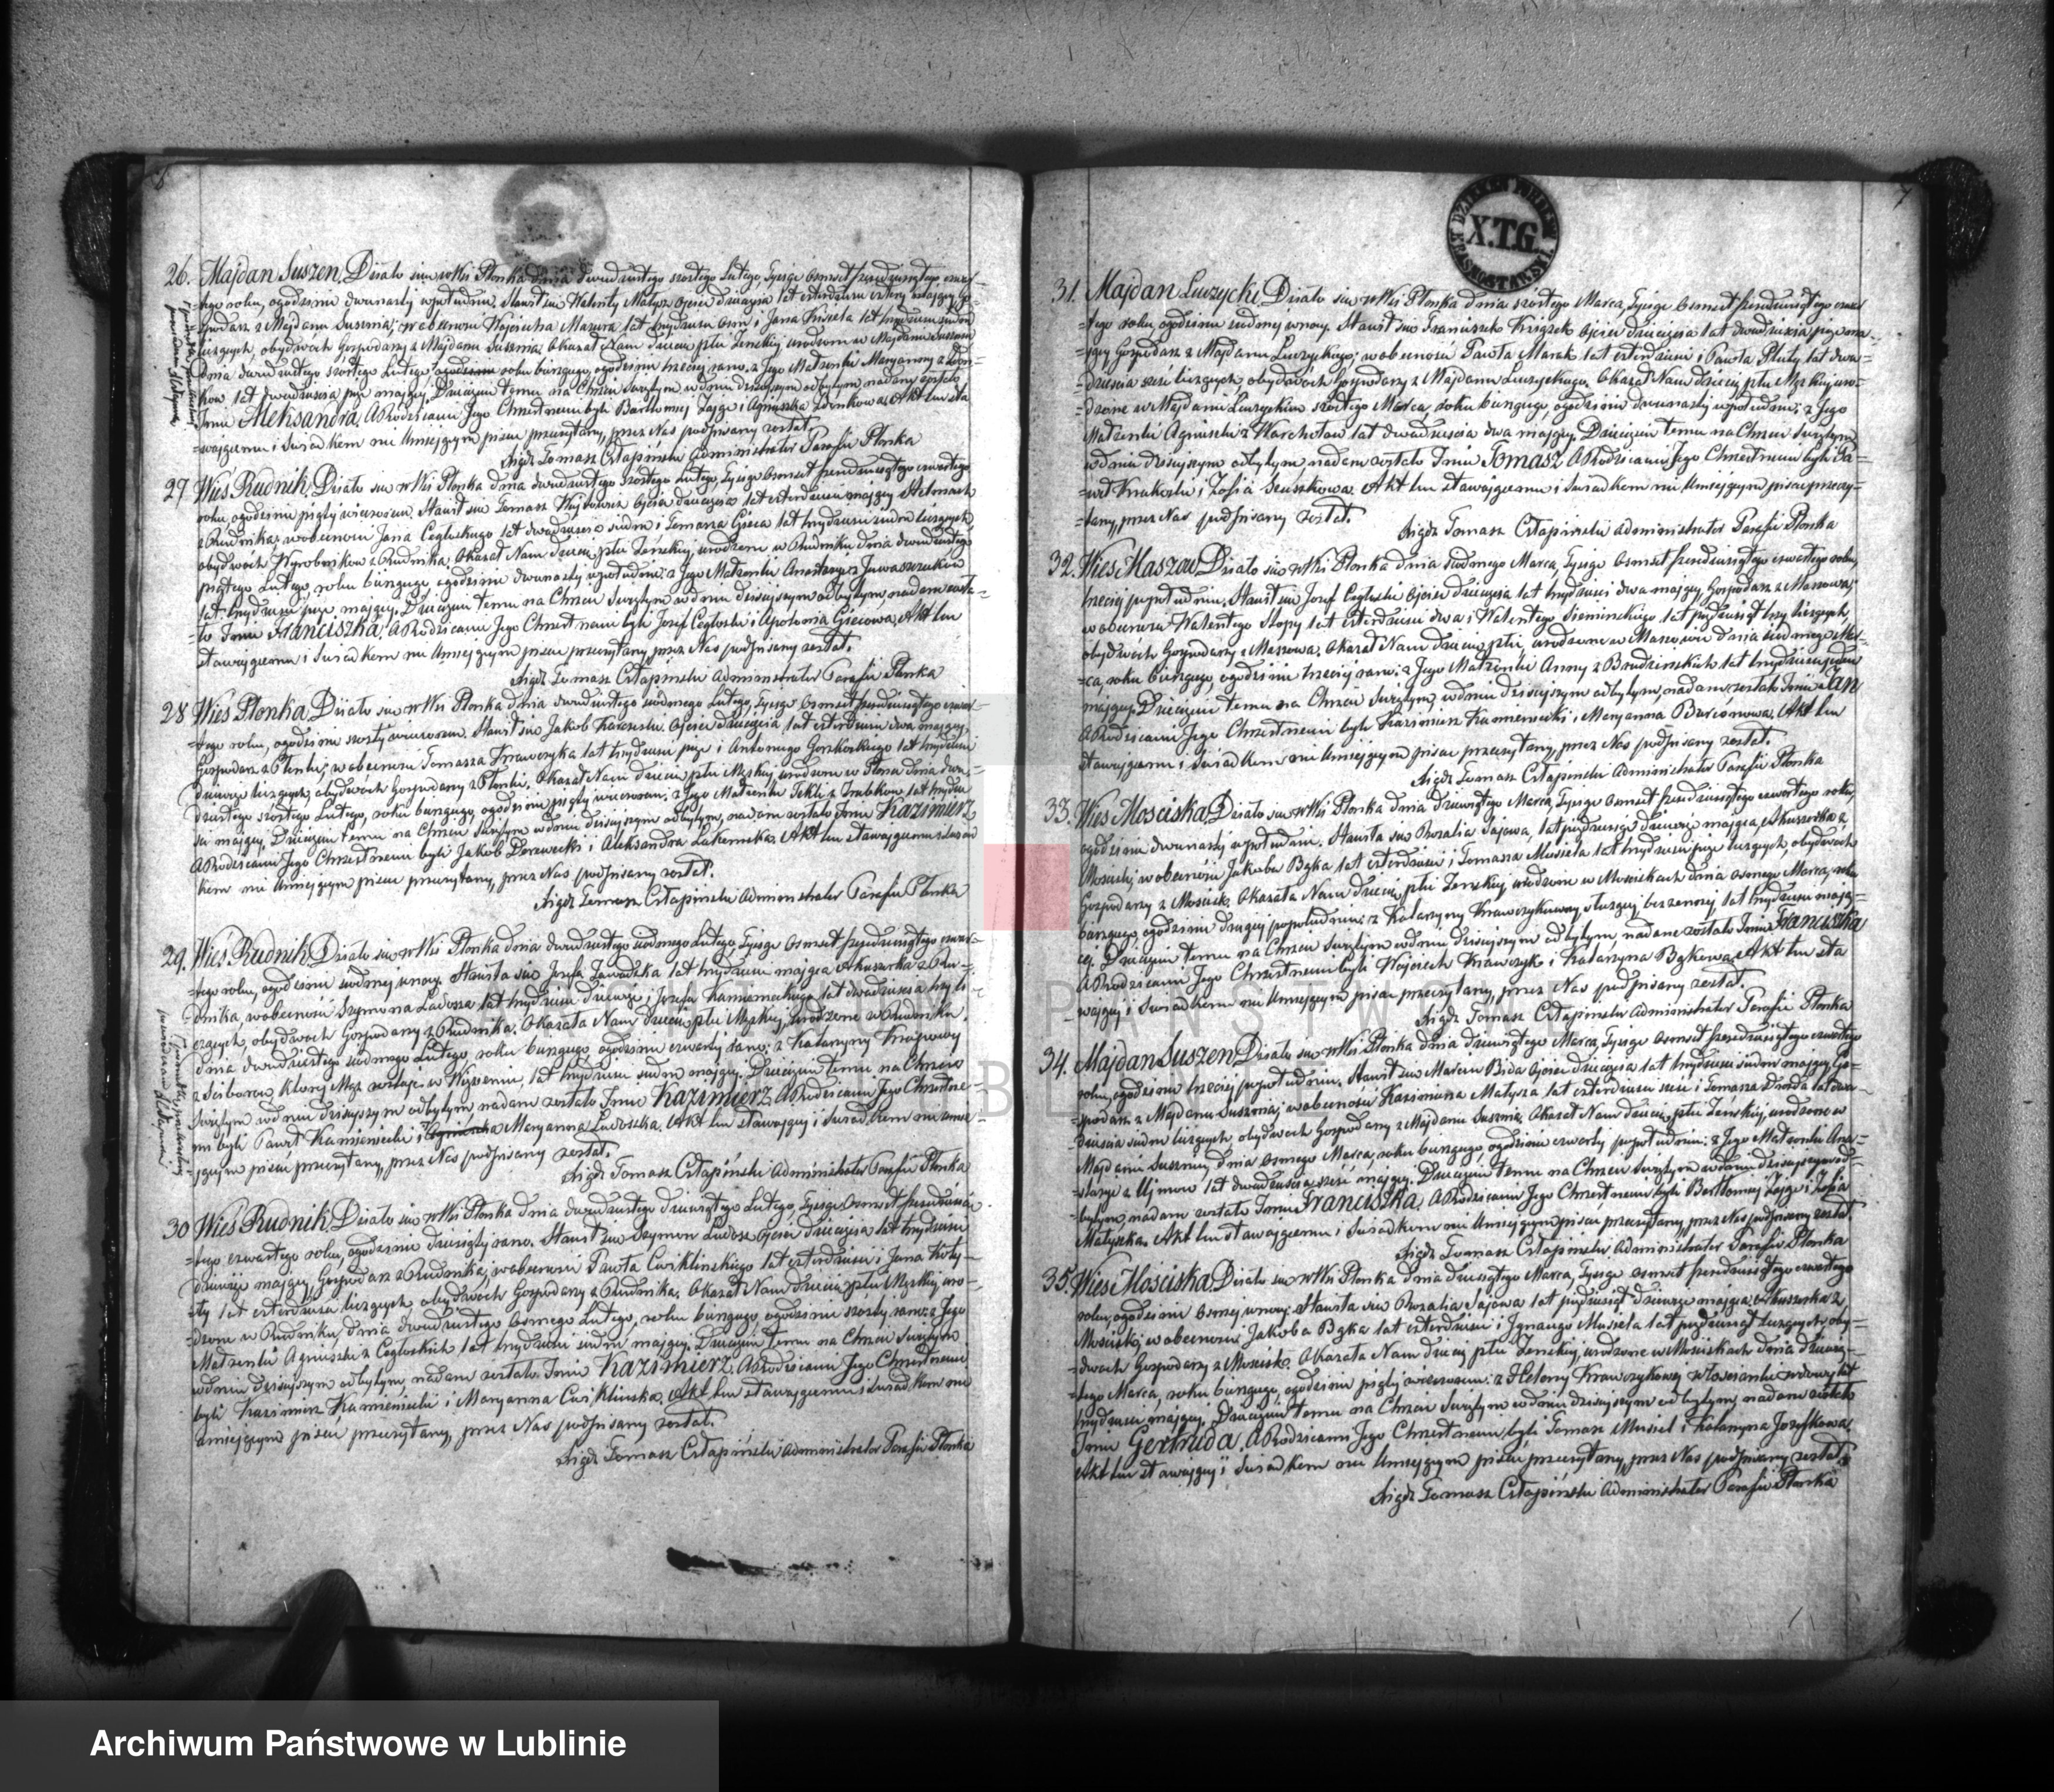 6
26. Majdan Suszen, Działo się w Wsi Płonka dnia dwudziestego szóstego Lutego, Tysiąc Osmset pięćdziesiątego czwar-
=tego roku, ogodzinie dwunasty wpołudnie, Stawił się Walenty Małysz Ojciec dziecięcia lat czterdzieści cztery mający Go-
=spodarz z Majdanu Suszna; wobecności Wojciecha Mazura lat trzydzieści osm i Jana Kisiela lat trzydzieści siedm
liczących, obydwóch Gospodarzy z Majdanu Suszna. Okazał Nam dziecię płci Żeńskiej urodzone w Majdanie Susznem
dnia dwudziestego szóstego Lutego roku bieżącego, ogodzinie trzeciej rano. z Jego Małżonki Maryanny z
=ków lat dwadzieścia pięć mającej. Dziecięciu temu na Chrzcie Świętym w dniu dzisiejszym odbytym, nadany zostało
Imie Aleksandra. A Rodzicami Jego Chrzestnemi byli Bartłomiej Zając i Agnieszka Zdunkowa, Akt ten sta
=wającemu i Świadkom nie Umiejącym pisać przeczytany, przez Nas podpisany został.
Xiądz Tomasz Człapiński Administrator Parafii Płonka
27 Wieś Rudnik, Działo się w Wsi Płonka dnia dwudziestego szóstego Lutego, Tysiąc Osmset pięćdziesiątego czwartego
roku, ogodzinie piąty wieczorem. Stawił się Tomasz Wójtowicz Ojciec dziecięcia lat czterdzieści mający Stelmach
z Rudnika; wobecności Jana Cegłuskiego lat dwadzieścia siedm i Tomasza Gieca lat trzydzieści siedm liczących,
obydwóch Wyrobników z Rudnika. Okazał Nam dziecię płci Żeńskiej urodzone w Rudniku dnia dwudziestego
piątego Lutego, roku bieżącego, ogodzinie dwunasty wpołudnie; z Jego Małżonki Anastazyi z
lat trzydzieści pięć mającej. Dziecięciu temu na Chrzcie Świętym w dniu dzisiejszym odbytym, nadane zosta=
ło Imie Franciszka, A Rodzicami Jego Chrzestnemi byli Józef Cegłoski i Apolonia Giecowa, Akt ten
stawającemu i Świadkom nie Umiejącym pisać przeczytany, przez Nas podpisany został.
Xiądz Tomasz Człapiński Administrator Parafii Płonka
28 Wieś Płonka, Działo się w Wsi Płonka dnia dwudziestego siódmego Lutego, Tysiąc Osmset pięćdziesiątego czwar-
=tego roku, ogodzinie szósty wieczorem. Stawił się Jakób Ojciec dziecięcia, lat czterdzieści dwa mający,
Gospodarz z Płonki; wobecności Tomasza Krawczyka lat trzydzieści pięć i Antoniego Gorzkoskiego lat trzydzieści
dziewięć liczących, obydwóch Gospodarzy z Płonki. Okazał Nam dziecię płci Męskiej urodzone w Płonce dnia dwu-
dziestego szóstego Lutego, roku bieżącego, ogodzinie piąty wieczorem; z Jego Małżonki Tekli z lat trzydzie
ści mającej, Dziecięciu temu na Chrzcie Świętym w dniu dzisiejszym odbytym, nadane zostało Imie Kazimierz
A Rodzicami Jego Chrzestnemi byli Jakób Derewecki i Aleksandra Akt ten stawającemu i Świad
kom nie Umiejącym pisać przeczytany, przez Nas podpisany został.
Xiądz Tomasz Człapiński Administrator Parafii Płonka
29. Wieś Rudnik, Działo się w Wsi Płonka dnia dwudziestego siódmego Lutego, Tysiąc Osmset pięćdziesiątego czwar-
=tego roku, ogodzinie siódmej wnocy. Stawiła się Józefa Zawadzka lat trzydzieści mająca Akuszerka z Ru-
dnika, wobecności Szymona Ładosza lat trzydzieści dziewięć i Józefa Kamienieckiego lat dwadzieścia trzy li
czących, obydwóch Gospodarzy z Rudnika. Okazała Nam dziecię płci Męskiej urodzone w Rudniku
dnia dwudziestego siódmego Lutego, roku bieżącego ogodzinie czwarty rano; z Katarzyny Knapowy
z Sciborów, której Mąż zostaje w Więzieniu, lat trzydzieści siedm mającej. Dziecięciu temu na Chrzcie
Świętym w dniu dzisiejszym odbytym nadane zostało Imie Kazimierz. A Rodzicami Jego Chrzestne-
mi byli Paweł Kamieniecki i Maryanna Ładoszka. Akt ten stawającej i Świadkom nie umie=
jącym pisać przeczytany, przez Nas podpisany został.
Xiądz Tomasz Człapiński Administrator Parafii Płonka
30 Wieś Rudnik, Działo się w Wsi Płonka dnia dwudziestego dziewiątego Lutego, Tysiąc Osmset pięćdziesią-
=tego czwartego roku, ogodzinie dziesiąty rano. Stawił się Szymon Ładosz Ojciec dziecięcia lat trzydzieści
dziewięć mający, Gospodarz z Rudnika; wobecności Pawła Ćwiklinskiego lat czterdzieści i Jana
lat czterdzieści liczących, obydwóch Gospodarzy z Rudnika. Okazał Nam dziecię płci Męskiej uro-
dzone w Rudniku, dnia dwudziestego Osmego Lutego, roku bieżącego ogodzinie szósty rano; z Jego
Małżonki Agnieszki z Cegłoskich lat trzydzieści siedm mającej. Dziecięciu temu na Chrzcie Świętym
w dniu dzisiejszym odbytym, nadane zostało Imie Kazimierz. A Rodzicami Jego Chrzestnemi
byli Kazimierz Kamieniecki i Maryanna Ćwiklinska, Akt ten stawającemu i Świadkom nie
umiejącym pisać przeczytany, przez Nas podpisany został.
Xiądz Tomasz Człapiński Administrator Parafii Płonka
7
DZIEKAN
X.T.G.
KRASNOSTAWSKI
31. Majdan Luczycki, Działo się w Wsi Płonka dnia szóstego Marca, Tysiąc Osmset pięćdziesiątego czwar
=tego roku, ogodzinie siódmej wnocy. Stawił się Franciszek Książek Ojciec dziecięcia lat dwadzieścia pięć ma-
=jący Gospodarz z Majdanu Luczyckiego; wobecności Pawła Marak lat czterdzieści i Pawła Pluty lat dwa-
=dzieścia sześć liczących, obydwóch Gospodarzy z Majdanu Luczyckiego. Okazał Nam dziecię płci Męskiej uro-
=dzone w Majdanie Luczyckim szóstego Marca, roku bieżącego, ogodzinie dwunasty wpołudnie; z Jego
Małżonki Agnieszki z Warchołów lat dwadzieścia dwa mającej. Dziecięciu temu na Chrzcie Świętym
w dniu dzisiejszym odbytym nadane zostało Imie Tomasz A Rodzicami Jego Chrzestnemi byli Pa-
=weł i Zofia Akt ten stawającemu i Świadkom nie Umiejącym pisać przeczy-
=tany, przez Nas podpisany został.
Xiądz Tomasz Człapiński Administrator Parafii Płonka
32. Wieś Maszow, Działo się w Wsi Płonka dnia siódmego Marca, Tysiąc Osmset pięćdziesiątego czwartego roku,
trzeciej popołudniu. Stawił się Józef Cegłoski Ojciec dziecięcia lat trzydzieści dwa mający, Gospodarz z Maszowa;
wobecności Walentego Słopy lat czterdzieści dwa i Walentego Sieminskiego lat pięćdziesiąt trzy liczących,
obydwóch Gospodarzy z Maszowa. Okazał Nam dziecię płci, urodzone w Maszowie dnia siódmego Mar-
=ca, roku bieżącego, ogodzinie trzeciej rano; z Jego Małżonki Anny z Brudzinskich lat trzydzieści jeden
mającej. Dziecięciu temu na Chrzcie Świętym, w dniu dzisiejszym odbytym, nadane zostało Imie Jan
A Rodzicami Jego Chrzestnemi byli Kazimierz Kaniewski i Maryanna Akt ten
stawającemu i Świadkom nie Umiejącym pisać przeczytany, przez Nas podpisany został.
Xiądz Tomasz Człapiński Administrator Parafii Płonka
33. Wieś Mosciska, Działo się w Wsi Płonka dnia dziewiątego Marca, Tysiąc Osmset pięćdziesiątego czwartego roku,
ogodzinie dwunasty wpołudnie. Stawiła się Rozalia Sajowa, lat pięćdziesiąt dziewięć mająca, Akuszerka z
Mościsk; wobecności Jakóba Bąka lat czterdzieści i Tomasza Musiela lat trzydzieści pięć liczących, obydwóch
Gospodarzy z Mościsk. Okazała Nam dziecię płci Żeńskiej urodzone w Mościskach dnia osmego Marca, roku
bieżącego ogodzinie drugiej popołudniu; z Katarzyny Krawczykowny służącej bezżennej lat trzydzieści mają-
cej. Dziecięciu temu na Chrzcie Świętym w dniu dzisiejszym odbytym, nadane zostało Imie Franciszka
A Rodzicami Jego Chrzestnemi byli Wojciech Krawczyk i Katarzyna Bąkowa. Akt ten sta
=wającej i Świadkom nie Umiejącym pisać przeczytany, przez Nas podpisany został.
Xiądz Tomasz Człapiński Administrator Parafii Płonka
34. Majdan Suszen, Działo się w Wsi Płonka dnia dziewiątego Marca, Tysiąc Osmset pięćdziesiątego czwartego
roku, ogodzinie trzeciej popołudniu. Stawił się Marcin Bida Ojciec dziecięcia lat trzydzieści siedm mający, Go-
=spodarz z Majdanu Suszna; wobecności Kazimirza Małysza lat czterdzieści sześć i Tomasza lat dwa-
dzieścia siedm liczących, obydwóch Gospodarzy z Majdanu Suszna. Okazał Nam dziecię płci Żeńskiej, urodzone w
Majdanie Susznie, dnia Osmego Marca, roku bieżącego, ogodzinie czwarty popołudniu; z Jego Małżonki Ana-
=stazyi z lat dwadzieścia sześć mającej. Dziecięciu temu na Chrzcie Świętym w dniu dzisiejszym od-
=bytym, nadane zostało Imie Franciszka. A Rodzicami Jego Chrzestnemi byli Bartłomiej Zając i Zofia
Małyszka. Akt ten stawającemu i Świadkom nie Umiejącym pisać przeczytany, przez Nas podpisany został.
Xiądz Tomasz Człapiński Administrator Parafii Płonka
35. Wieś Mosciska, Działo się w Wsi Płonka dnia dziesiątego Marca, Tysiąc Osmset pięćdziesiątego czwartego
roku, ogodzinie Osmej wnocy. Stawiła się Rozalia Sajowa lat pięćdziesiąt dziewięć mająca, Akuszerka z
Mościsk; wobecności Jakóba Bąka lat czterdzieści i Ignacego Musiela lat pięćdziesiąt liczących, oby-
=dwóch Gospodarzy z Mościsk. Okazała Nam dziecię płci Żeńskiej, urodzone w Mościskach dnia dziewią-
=tego Marca, roku bieżącego, ogodzinie piąty wieczorem; z Heleny Krawczykowej włościanki wdowy lat
trzydzieści mającej. Dziecięciu temu na Chrzcie Świętym w dniu dzisiejszym odbytym, nadane zostało
Imie Gertruda, A Rodzicami Jego Chrzestnemi, byli Tomasz Musiel i Katarzyna Józefkowa.
Akt ten stawającej i Świadkom nie Umiejącym pisać przeczytany, przez Nas podpisany został.
Xiądz Tomasz Człapiński Administrator Parafii Płonka
ARCHIWUM PAŃSTWOWE
W LUBLINIE
Archiwum Państwowe w Lublinie